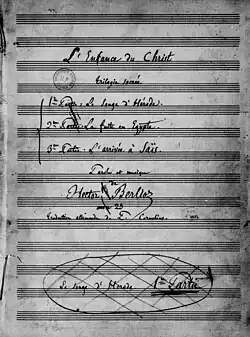 L'Enfance du Christ
trilogie sacrée
1re Partie: Le songe d'Hérode.
2me Partie: La fuite en Egypte.
3me Partie: L'arrivée à Saïs.
Paroles et musique
de
Hector Berlioz
Œuv: 25
traduction allemande de P. Cornelius.
Le songe d'Hérode 1re Partie